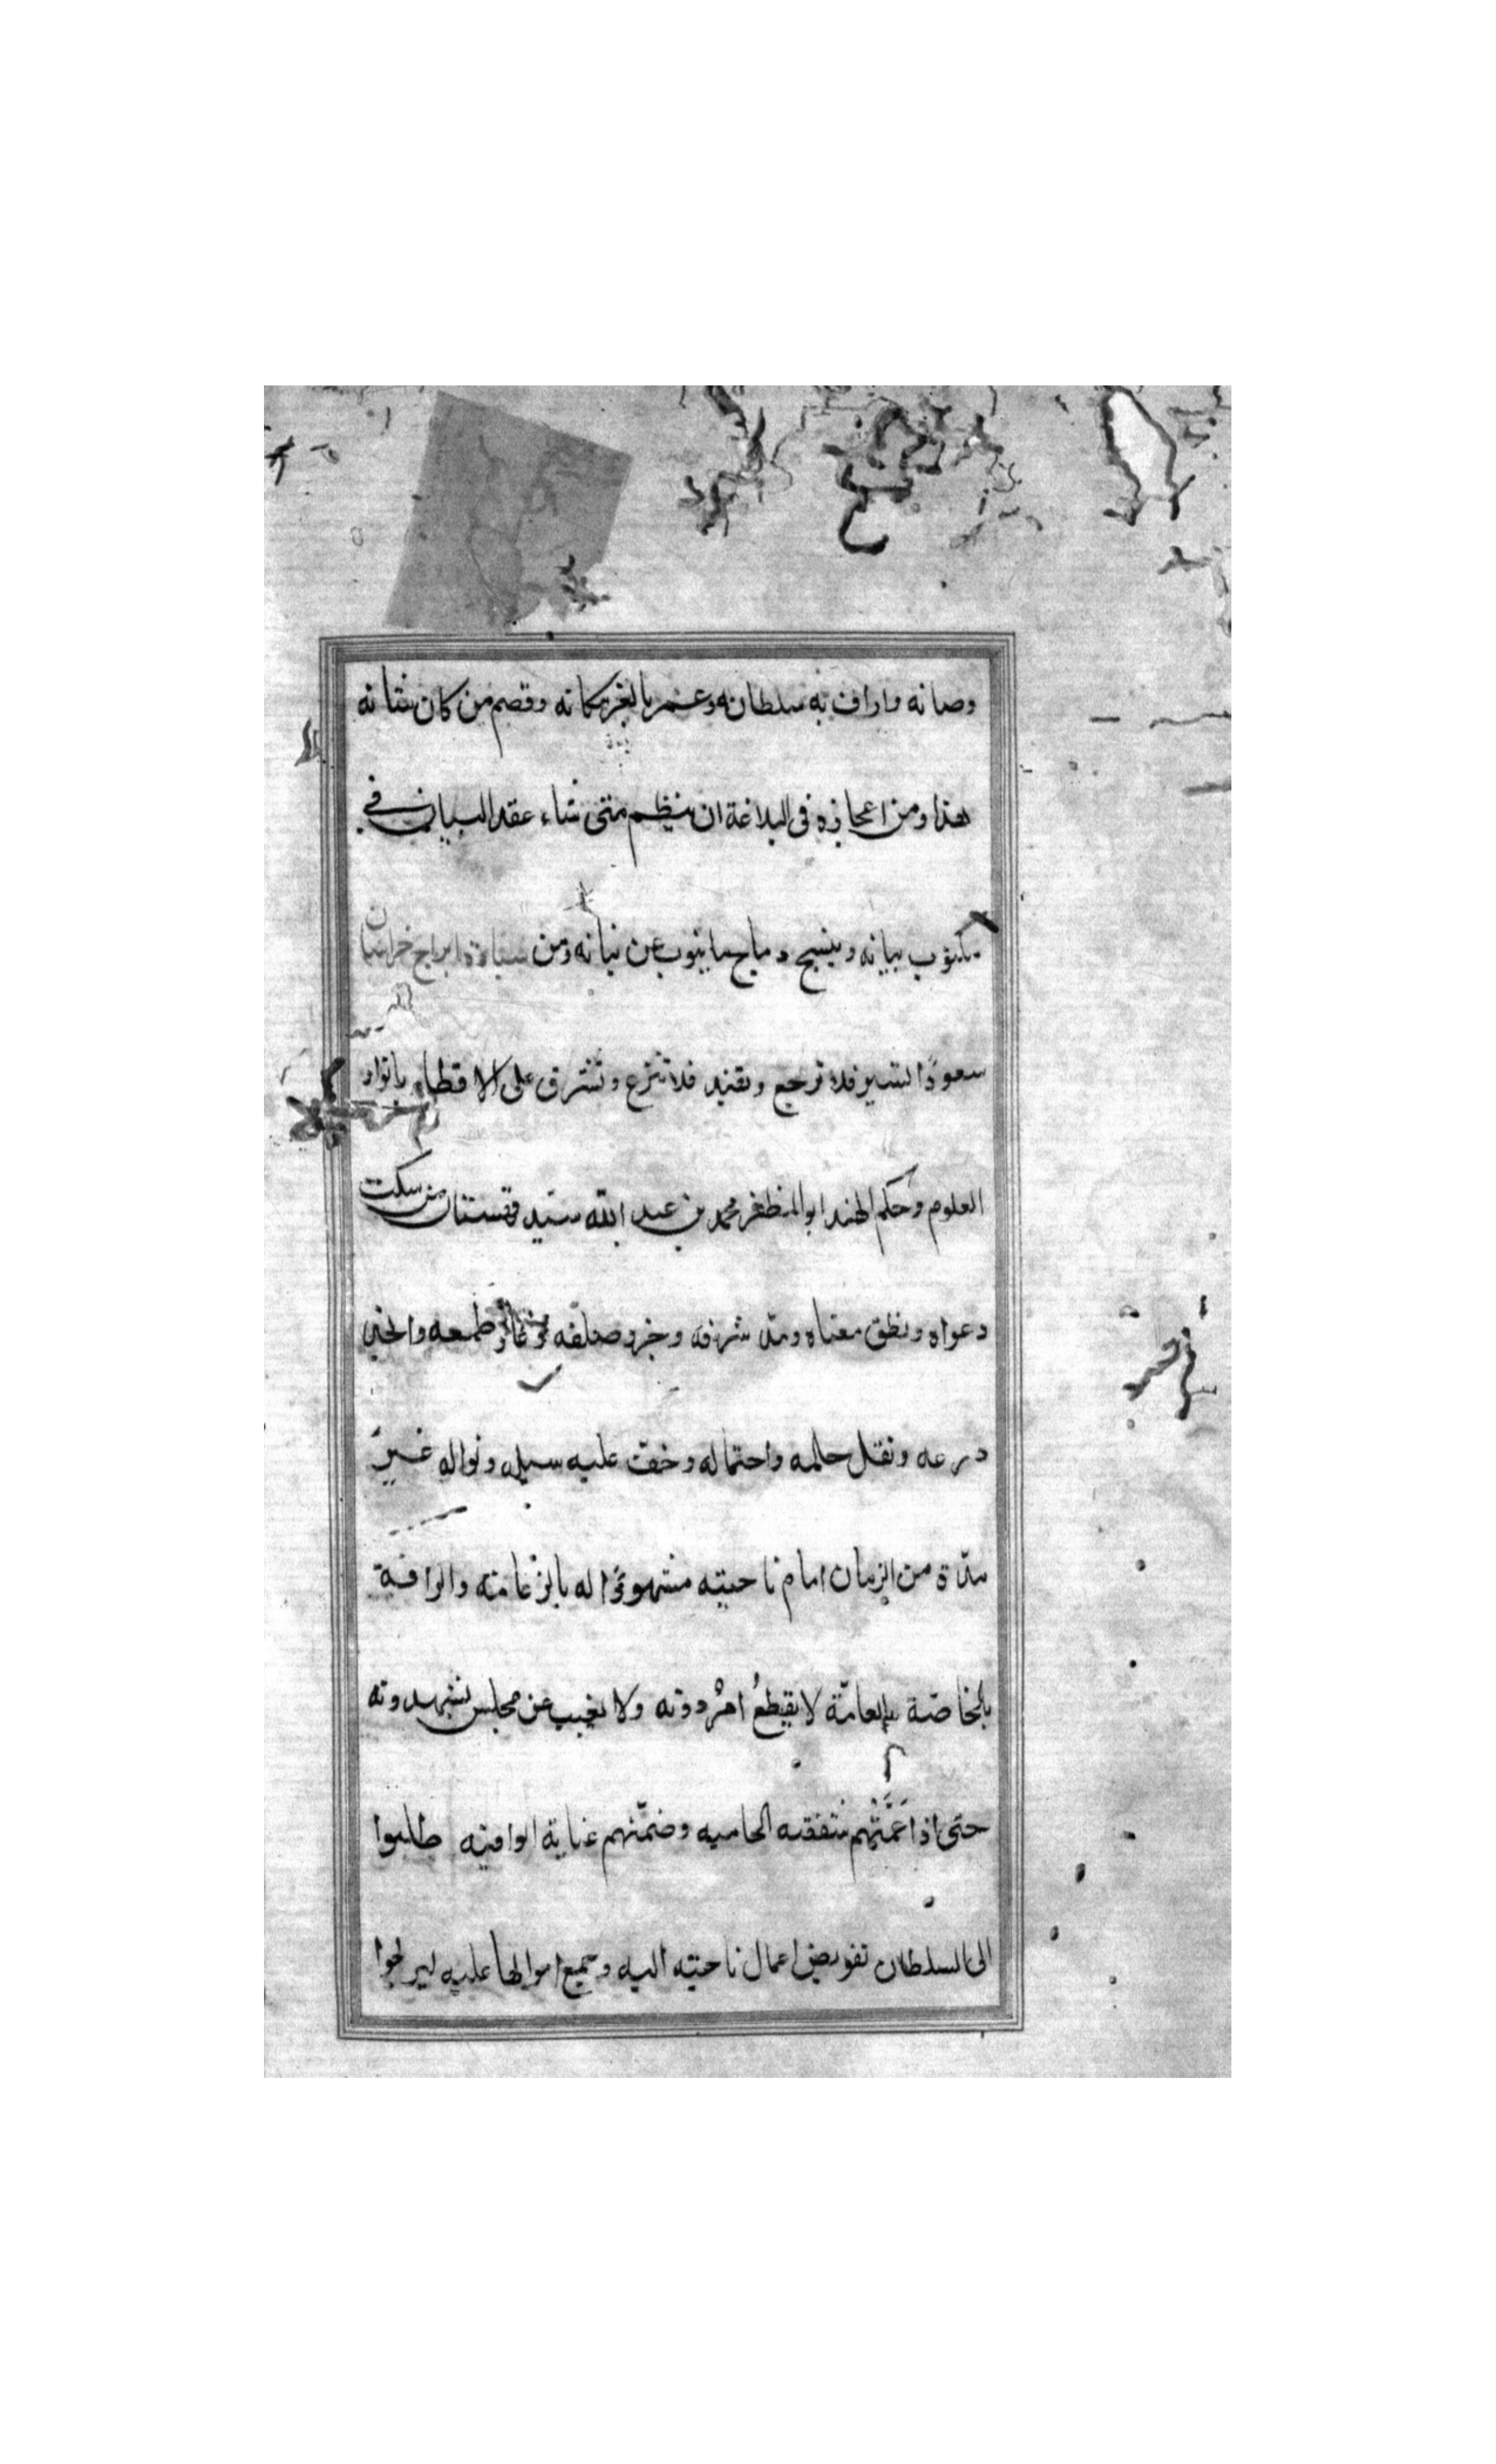 وصانه واراف به سلطانه وعمر بالعز مكانه وقصم من كان شانه
هذا ومن اعجازه في البلاغة ان ينظم متى شاء عقد البيان في
مكتوب بيانه وينسج ديباج ما ينوب عن بيانه ومن ابراج خراسان
سعودًا تسير فلا ترجع وتقند فلا تنزع وتشرق على الاقطار بانوار
العلوم وحكم الهند ابو المظفر محمد بن عبد الله سيد قهستان من سكت
دعواه ونطق معناه ومد شرفه وجزر صلفه وطمعه
درعه وثقل حلمه واحتماله وخفت عليه سبيل ونواله غبر
مدّة من الزمان امام ناحيته مشهودًا له بالزعامته والرافة
بالخاصّة بالعامّة لا يقطعُ امرُ دونه ولا يغيب عن مجلس يشهدونه
حتى اذا عَمَّتْهم شفقته الحاميه وضمّتهم عناية الوافيته طلبوا
الى السلطان تفويض اعمال ناحيته اليه وجميع اموالها عليه ليرلحوا